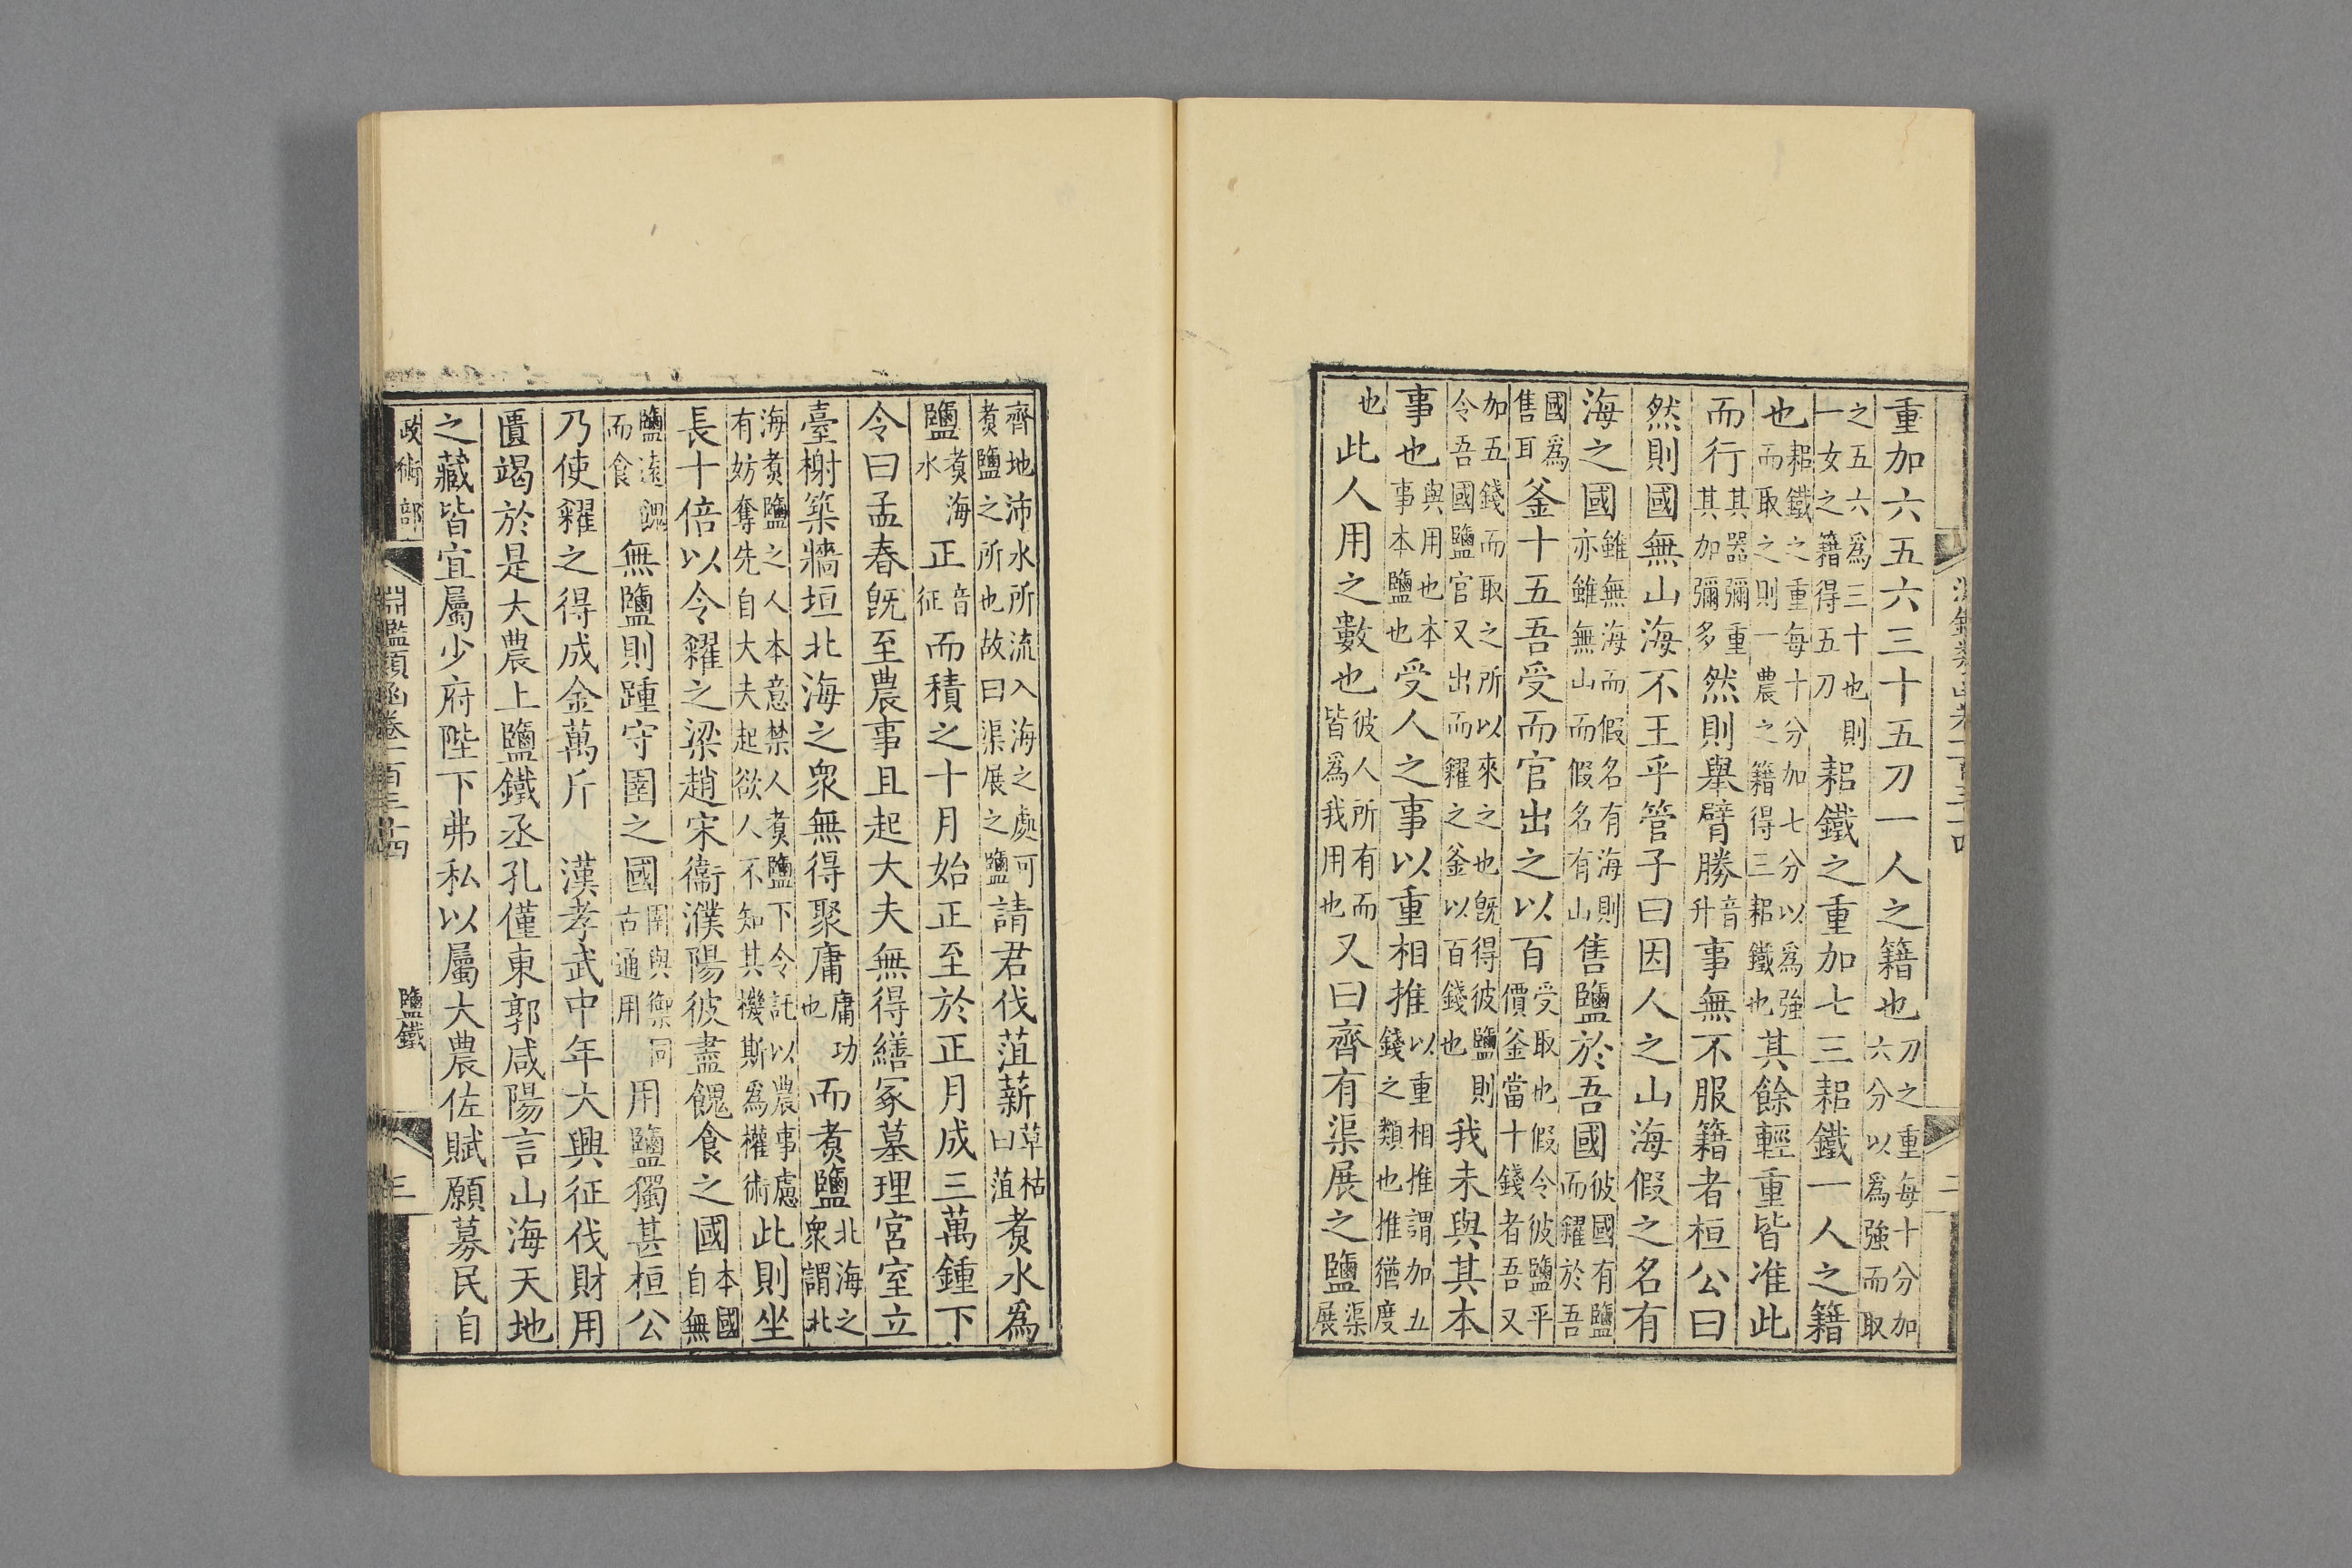 重加六五六三十五刀一人之籍也刀之重每十分加六分以爲強而取
之五六爲三十也則一女之籍得五刀耜鐵之重加七三耜鐵一人之籍
也耜鐵之重每十分加七分以爲強而取之則一農之籍得三耜鐵也其餘輕重皆准此
而行其器彌重其加彌多然則舉臂勝音升事無不服籍者桓公曰
然則國無山海不王乎管子曰因人之山海假之名有
海之國雖無海而假名有海則亦雖無山而假名有山售鹽於吾國彼國有鹽而糴於吾
國爲售耳釜十五吾受而官出之以百受取也假令彼鹽平價釜當十錢者吾又
加五錢而取之所以來之也旣得彼鹽則令吾國鹽官又出而糴之釜以百錢也我未與其本
事也與用也本事本鹽也受人之事以重相推以重相推謂加五錢之類也推猶度
也此人用之數也彼人所有而皆爲我用也又曰齊有渠展之鹽渠展
齊地沛水所流入海之處可煑鹽之所也故曰渠展之鹽請君伐菹薪草枯曰菹煑水爲
鹽煑海水正音征而積之十月始正至於正月成三萬鍾下
令曰孟春旣至農事且起大夫無得繕冢墓理宮室立
臺榭築牆垣北海之衆無得聚庸庸功也而煑鹽北海之衆謂北
海煑鹽之人本意禁人煑鹽下令託以農事慮有妨奪先自大夫起欲人不知其機斯爲權術此則坐
長十倍以令糴之梁趙宋衞濮陽彼盡餽食之國本國自無
鹽遠餽而食無鹽則踵守圉之國圉與禦同古通用用鹽獨甚桓公
乃使糴之得成金萬斤　漢孝武中年大興征伐財用
匱竭於是大農上鹽鐵丞孔僅東郭咸陽言山海天地
之藏皆宜屬少府陛下弗私以屬大農佐賦願募民自
政術部　淵鑑類函卷一百三十四　鹽鐵　三